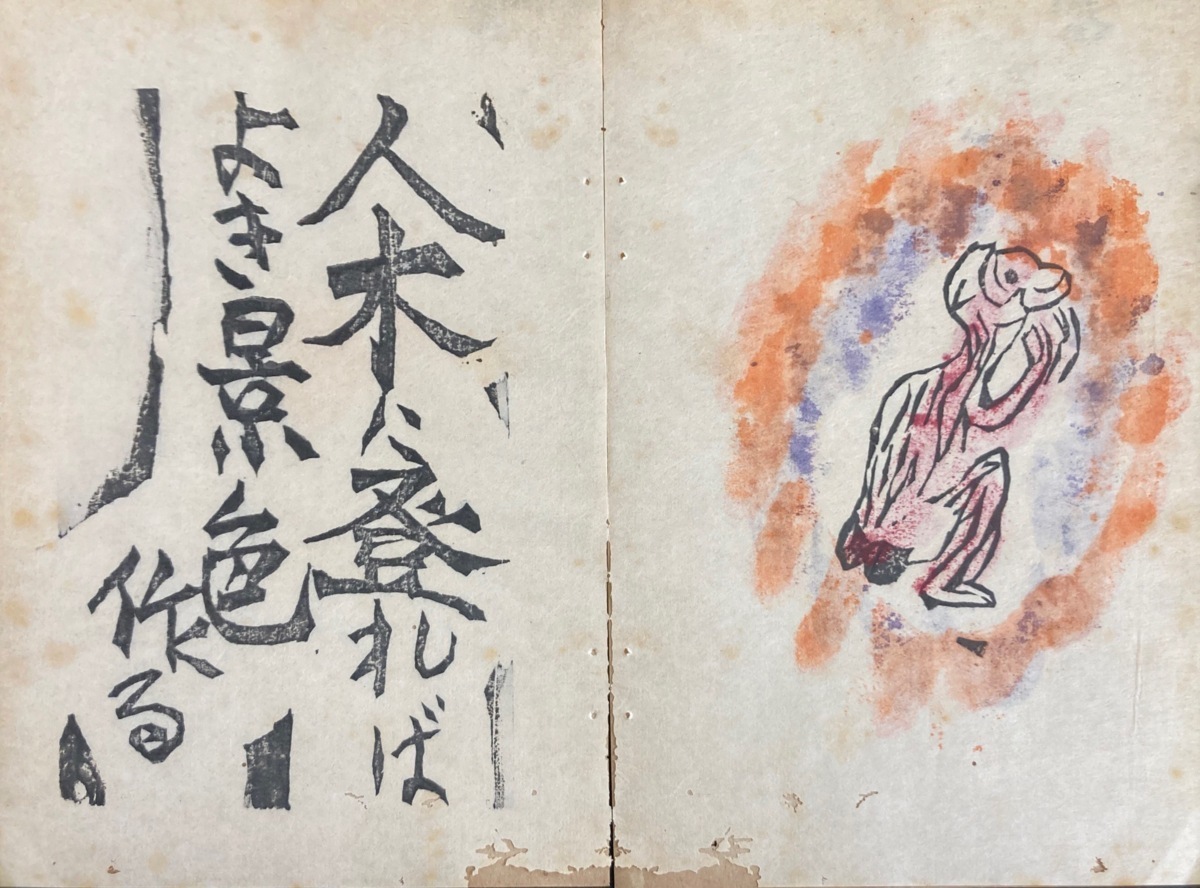 人木に登れば
よき景色
作る